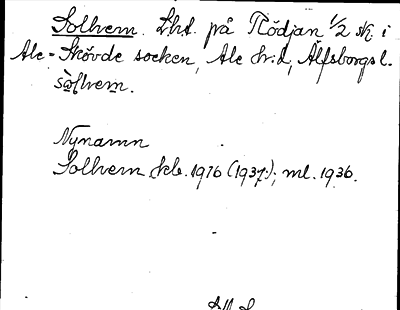 Solhem. Lht. på Rödjan 1/2 sk. i
Ale-Skövde socken, Ale hd, Älfsborgs l.
sòlhem.
Nynamn
Solhem skb. 1916 (1937); ml. 1936.